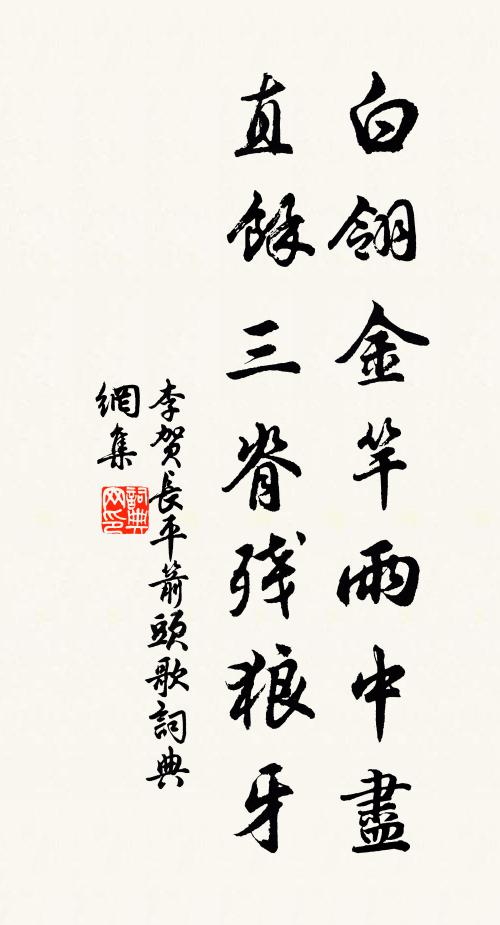 白翎金竿雨中盡
直餘三脊殘狼牙
李賀長平箭頭歌詞典
網集
詞典
网印